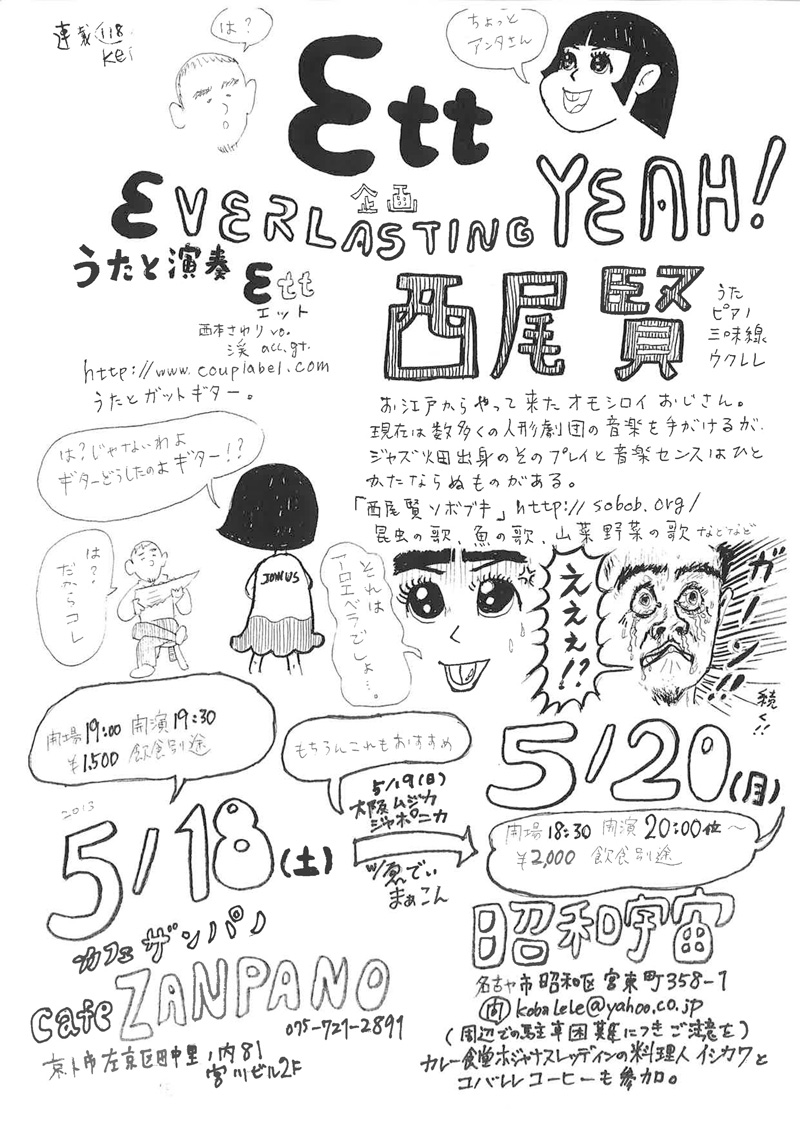 連載 118
Kei
は?
ちょっと
アンタさん
Ett
企画
EVERLASTING YEAH!
うたと演奏
Ett
エット
西本さゆり vo.
渓 acc.gt.
http://www.couplabel.com
うたとガットギター。
西尾賢
うた
ピアノ
三味線
ウクレレ
お江戸からやって来たオモシロイおじさん。
現在は数多くの人形劇団の音楽を手がけるが、
ジャズ畑出身のそのプレイと音楽センスはひと
かたならぬものがある。
「西尾賢ソボブキ」http://sobob.org/
昆虫の歌、魚の歌、山菜野菜の歌などなど
は?じゃないわよ
ギターどうしたのよギター!?
JOIN US
は?
だからコレ
それは
アロエベラでしょ…。
えええ!?
ガーン!!
続く!!
開場19:00 開演19:30
¥1,500 飲食別途
もちろんこれもおすすめ
2013
5/18(土)
カフェ ザンパノ
cafe ZANPANO
075-721-2891
京都市左京区田中里ノ内81
宮川ビル2F
5/19(日)
大阪ムジカ
ジャポニカ
まぁこん
5/20(月)
開場18:30 開演20:00位~
¥2,000 飲食別途
昭和宇宙
名古ヤ市昭和区宮東町358-1
問 kobalele@yahoo.co.jp
(周辺での駐車困難につきご注意を)
カレー食堂ホジャナスレッディンの料理人イシカワと
コバレレコーヒーも参加。